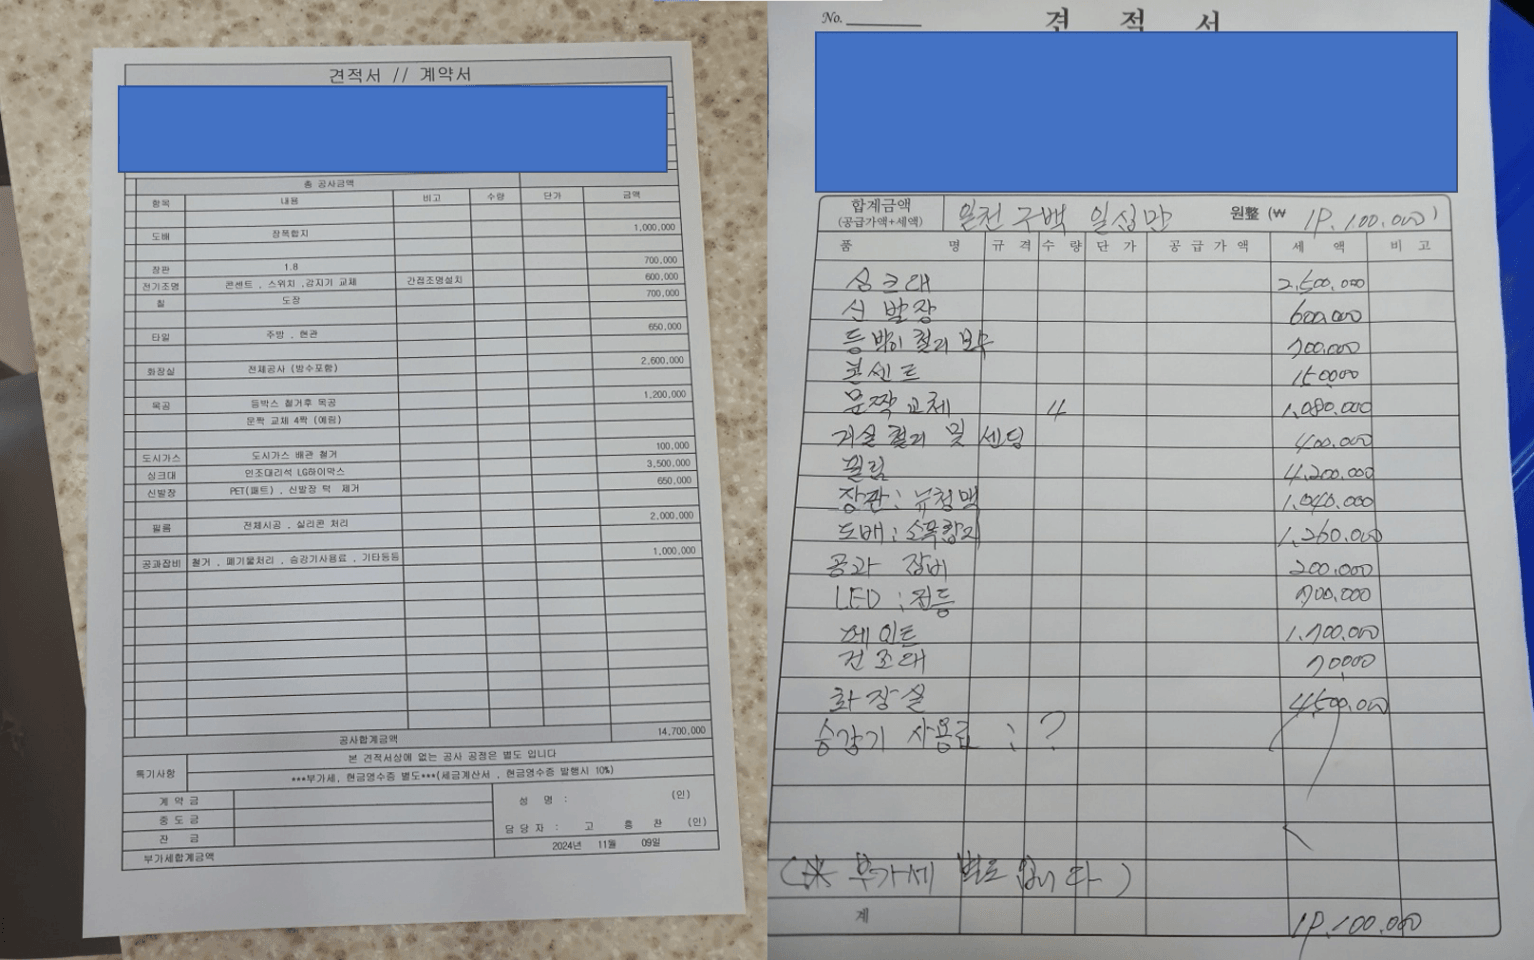 견적서 // 계약서
총 공사금액
항목 내용 비고 수량 단가 금액
도배 장폭합지 1,000,000
장판 1.8 700,000
전기조명 콘센트 , 스위치 ,감지기 교체 간접조명설치 600,000
칠 도장 700,000
타일 주방 , 현관 650,000
화장실 전체공사 (방수포함) 2,600,000
목공 등박스 철거후 목공 1,200,000
문짝 교체 4짝 (예림)
도시가스 도시가스 배관 철거 100,000
싱크대 인조대리석 LG하이막스 3,500,000
신발장 PET(페트) , 신발장 턱 제거 650,000
필름 전체시공 , 실리콘 처리 2,000,000
공과잡비 철거 , 폐기물처리 , 승강기사용료 , 기타등등 1,000,000
공사합계금액 14,700,000
특기사항 본 견적서상에 없는 공사 공정은 별도 입니다
***부가세, 현금영수증 별도***(세금계산서 , 현금영수증 발행시 10%)
계 약 금 성 명 : (인)
중 도 금
잔 금 담 당 자 : 고 홍 찬 (인)
부가세합계금액 2024년 11월 09일
No.
견 적 서
합계금액 (공급가액+세액) 일천 구백 일십만 원整 (₩ 19,100,000)
품 명 규 격 수 량 단 가 공 급 가 액 세 액 비 고
싱크대 2,500,000
신발장 600,000
등박이 철거 보수 700,000
콘센트 150,000
문짝 교체 4 1,080,000
거실 철거 및 센딩 400,000
필림 4,200,000
장판 : 뉴청맥 1,040,000
도배 : 소폭합지 1,260,000
공과 잡비 200,000
LED : 전등 700,000
페인트 1,700,000
건조대 70,000
화장실 4,500,000
승강기 사용료 : ?
(※ 부가세 별도 입니다)
계 19,100,000